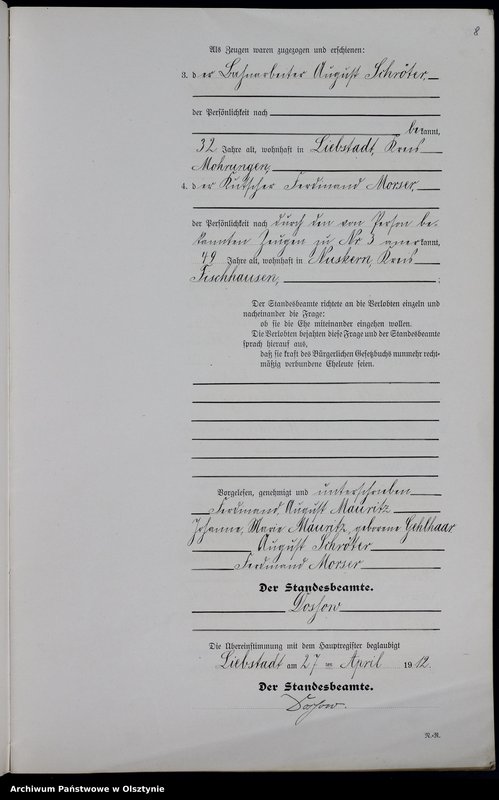 8
Als Zeugen waren zugezogen und erschienen:
3. der Bahnarbeiter August Schröter,
der Persönlichkeit nach
bekannt,
32 Jahre alt, wohnhaft in Liebstadt, Kreis
Mohrungen,
4. der Kutscher Ferdinand Morser,
der Persönlichkeit nach durch den von Person be-
kannten Zeugen zu Nr. 3 anerkannt,
49 Jahre alt, wohnhaft in Nuskern, Kreis
Fischhausen, ;
Der Standesbeamte richtete an die Verlobten einzeln und
nacheinander die Frage:
ob sie die Ehe miteinander eingehen wollen.
Die Verlobten bejahten diese Frage und der Standesbeamte
sprach hierauf aus,
daß sie kraft des Bürgerlichen Gesetzbuchs nunmehr recht-
mäßig verbundene Eheleute seien.
Vorgelesen, genehmigt und unterschrieben
Ferdinand August Mauritz
Johanne, Marie Mauritz, geborene Gehlhaar
August Schröter
Ferdinand Morser
Der Standesbeamte.
Die Übereinstimmung mit dem Hauptregister beglaubigt
Liebstadt am 27 ten April 1912.
Der Standesbeamte.
N.-R.
Archiwum Państwowe w Olsztynie